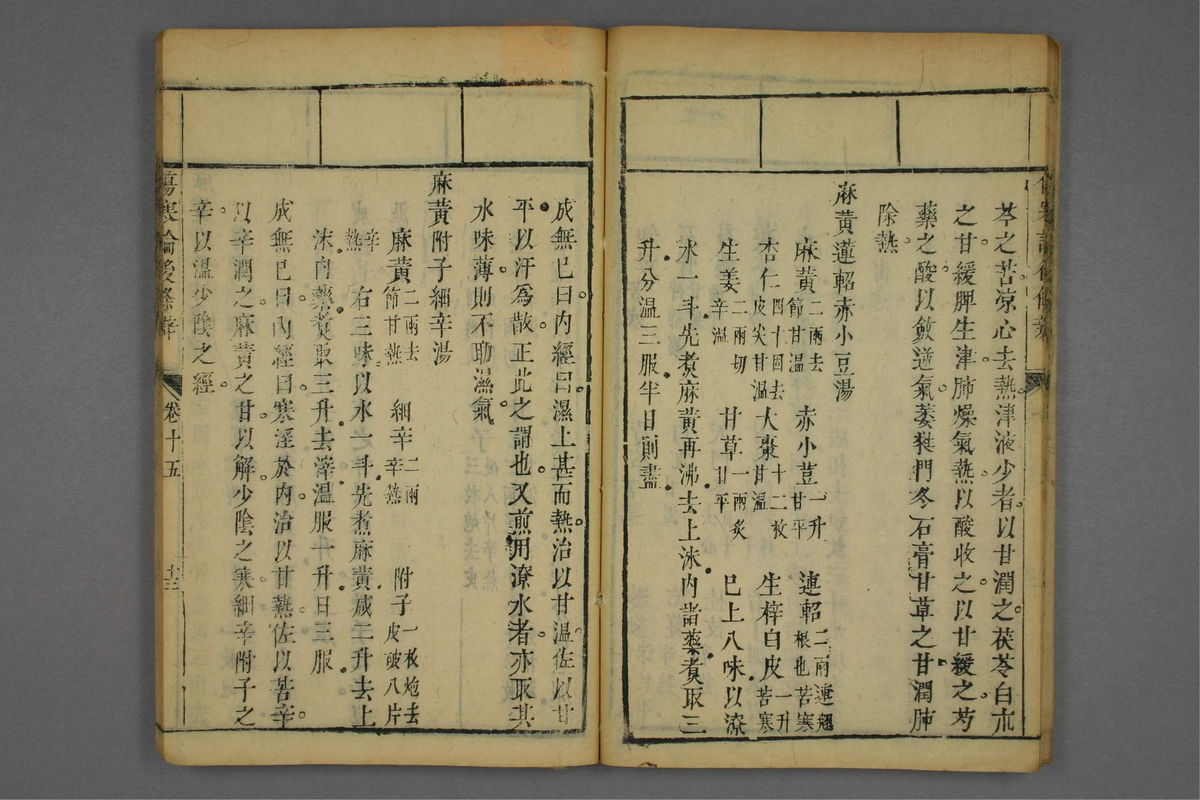 芩之苦凉心去熱津液少者以甘潤之茯苓白朮
之甘緩脾生津肺燥氣熱以酸收之以甘緩之芍
藥之酸以斂逆氣萎蕤門冬石膏甘草之甘潤肺
除熱
麻黃連軺赤小豆湯
麻黃二兩去節甘溫 赤小荳一升甘平 連軺二兩連翹根也苦寒
杏仁四十個去皮尖甘溫 大棗十二枚甘溫 生梓白皮一升苦寒
生姜二兩切辛溫 甘草一兩炙甘平 已上八味以潦
水一斗先煑麻黃再沸去上沫內諸藥煑取三
升分溫三服半日則盡
成無已曰內經曰濕上甚而熱治以甘溫佐以甘
平以汗爲故正此之謂也又煎用潦水者亦取其
水味薄則不助濕氣
麻黃附子細辛湯
麻黃二兩去節甘熱 細辛二兩辛熱 附子一枚炮去皮破八片辛熱
右三味以水一斗先煮麻黃減二升去上
沫內藥煑取三升去滓溫服一升日三服
成無已曰內經曰寒淫於內治以甘熱佐以苦辛
以辛潤之麻黃之甘以解少陰之寒細辛附子之
辛以溫少陰之經
傷寒論後條辨 卷十五 十三